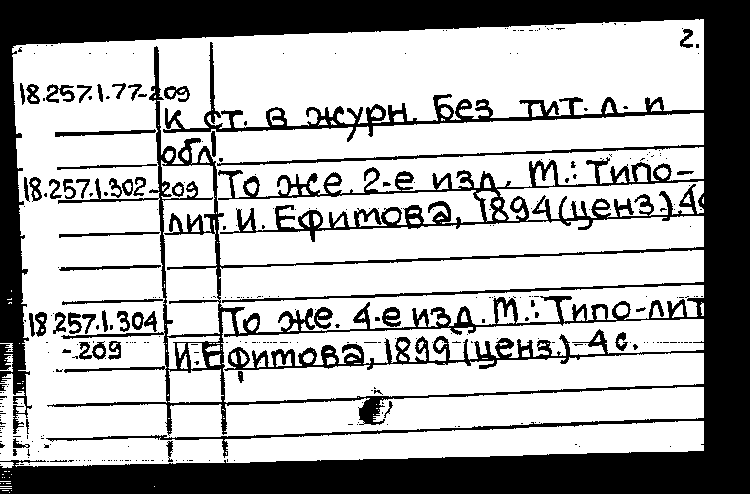 2.
18.257.1.77-209
к ст. в журн. Без тит. л. и
обл.
18.257.1.302-209 То же. 2-е изд. М.: Типо-
лит. И. Ефимова, 1894 (ценз.). 4с
18.257.1.304 То же. 4-е изд. М.: Типо-лит
-209 И. Ефимова, 1899 (ценз.). 4 с.